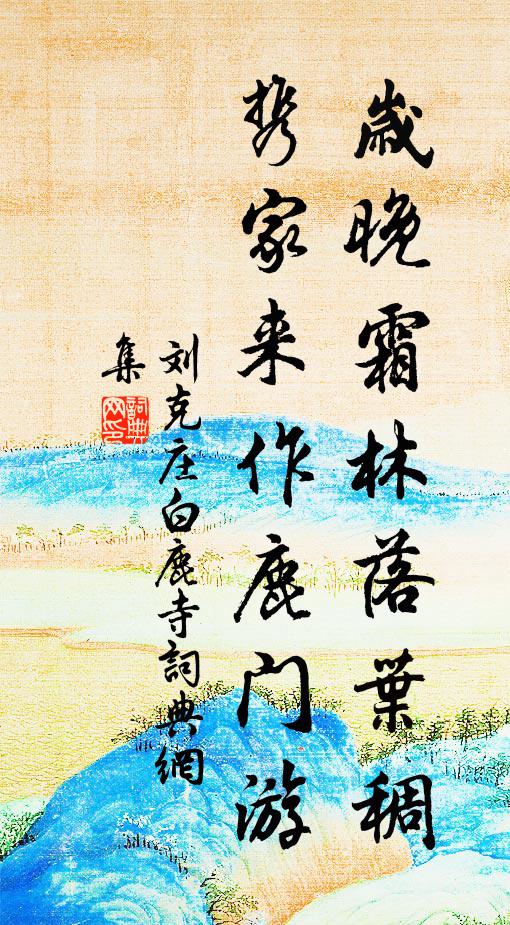 岁晚霜林落葉稠
携家来作鹿门游
刘克庄白鹿寺詞典網
集
詞典
网印